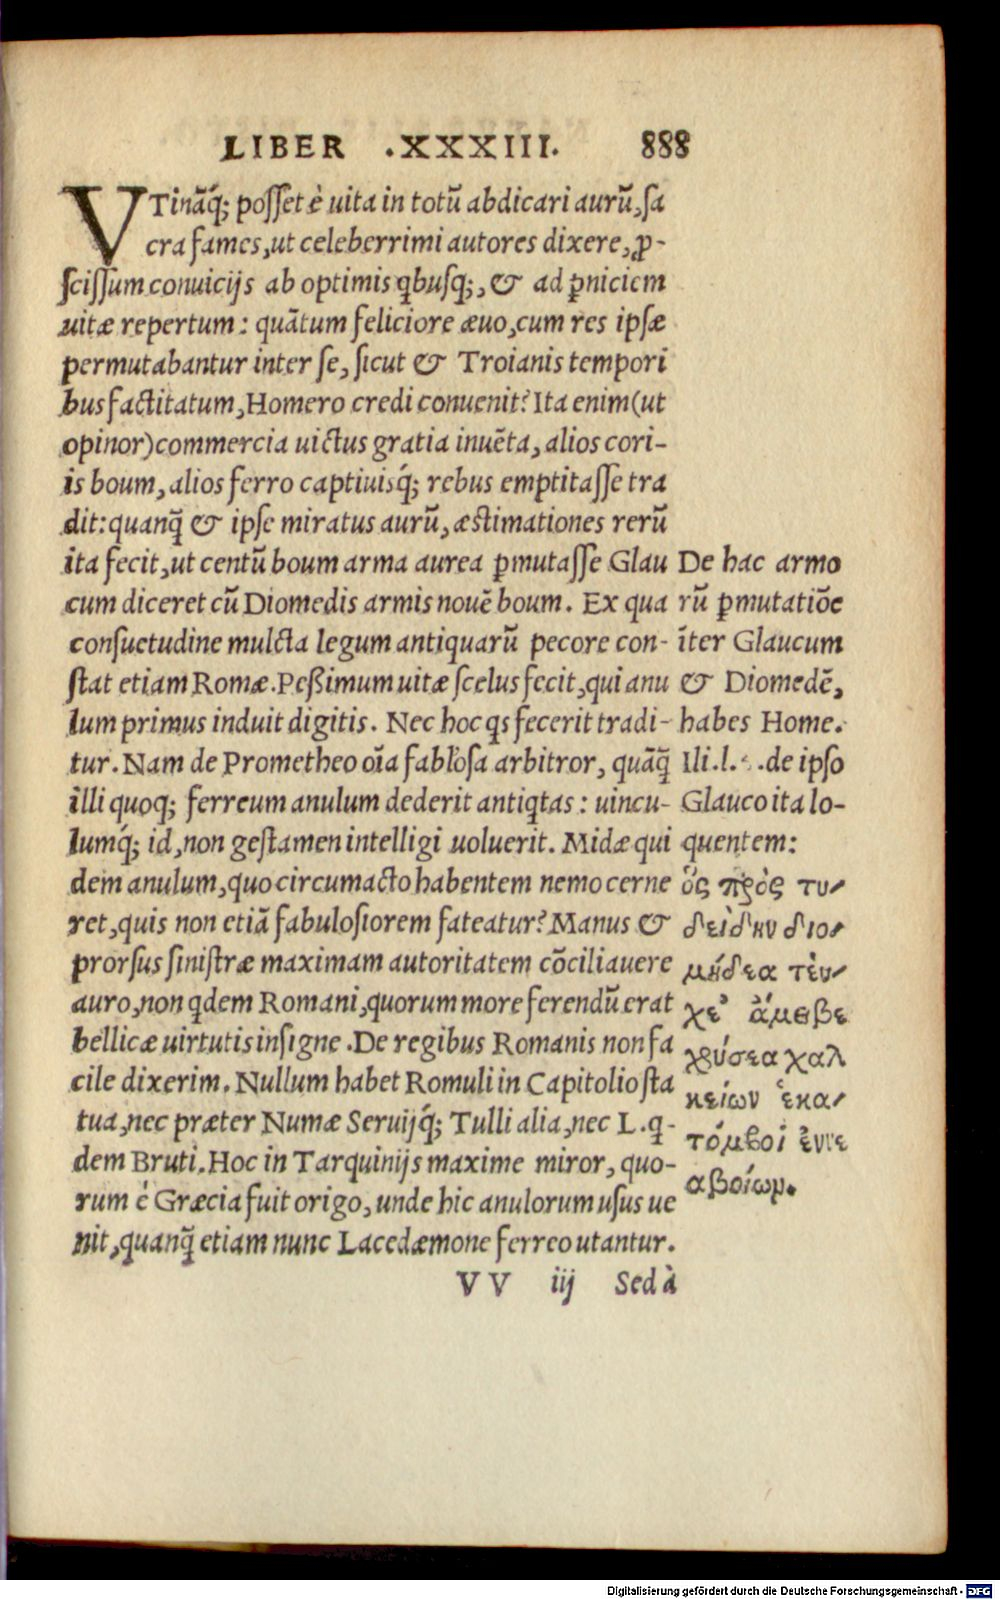 LIBER .XXXIII. 888
VTinãq́; posset è uita in totũ abdicari aurũ, sa
cra fames, ut celeberrimi autores dixere, ꝓ-
scissum conuicijs ab optimis qbusq;, & ad ꝑniciem
uitæ repertum: quãtum feliciore æuo, cum res ipsæ
permutabantur inter se, sicut & Troianis tempori
bus factitatum, Homero credi conuenit? Ita enim (ut
opinor) commercia uictus gratia inuẽta, alios cori-
is boum, alios ferro captiuisq́; rebus emptitasse tra
dit: quanq̃ & ipse miratus aurũ, æstimationes rerũ
ita fecit, ut centũ boum arma aurea ꝑmutasse Glau
cum diceret cũ Diomedis armis nouẽ boum. Ex qua
consuetudine mulcta legum antiquarũ pecore con-
stat etiam Romæ. Peßimum uitæ scelus fecit, qui anu
lum primus induit digitis. Nec hoc qs fecerit tradi-
tur. Nam de Prometheo oĩa fabl'osa arbitror, quãq̃
illi quoq; ferreum anulum dederit antiqtas: uincu-
lumq́; id, non gestamen intelligi uoluerit. Midæ qui
dem anulum, quo circumacto habentem nemo cerne
ret, quis non etiã fabulosiorem fateatur? Manus &
prorsus sinistræ maximam autoritatem cõciliauere
auro, non qdem Romani, quorum more ferendũ erat
bellicæ uirtutis insigne. De regibus Romanis non fa
cile dixerim. Nullum habet Romuli in Capitolio sta
tua, nec præter Numæ Seruijq́; Tulli alia, nec L. q-
dem Bruti. Hoc in Tarquinijs maxime miror, quo-
rum è Græcia fuit origo, unde hic anulorum usus ue
nit, quanq̃ etiam nunc Lacedæmone ferreo utantur.
VV iij Sed à
De hac armo
rũ ꝑmutatiõe
ĩter Glaucum
& Diomedẽ,
habes Home.
Ili.l. .de ipso
Glauco ita lo-
quentem:
ὃς πρὸς τυ-
δείδην διο-
μήδεα τεύ-
χε' ἄμειβε
χρύσεα χαλ
κείων ἑκα-
τόμβοι' ἐννε
αβοίων.
Digitalisierung gefördert durch die Deutsche Forschungsgemeinschaft - DFG